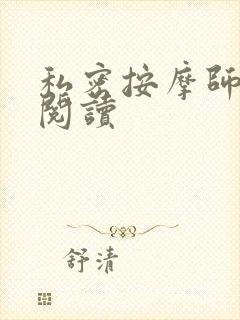 私密按摩師
閱讀
舒清